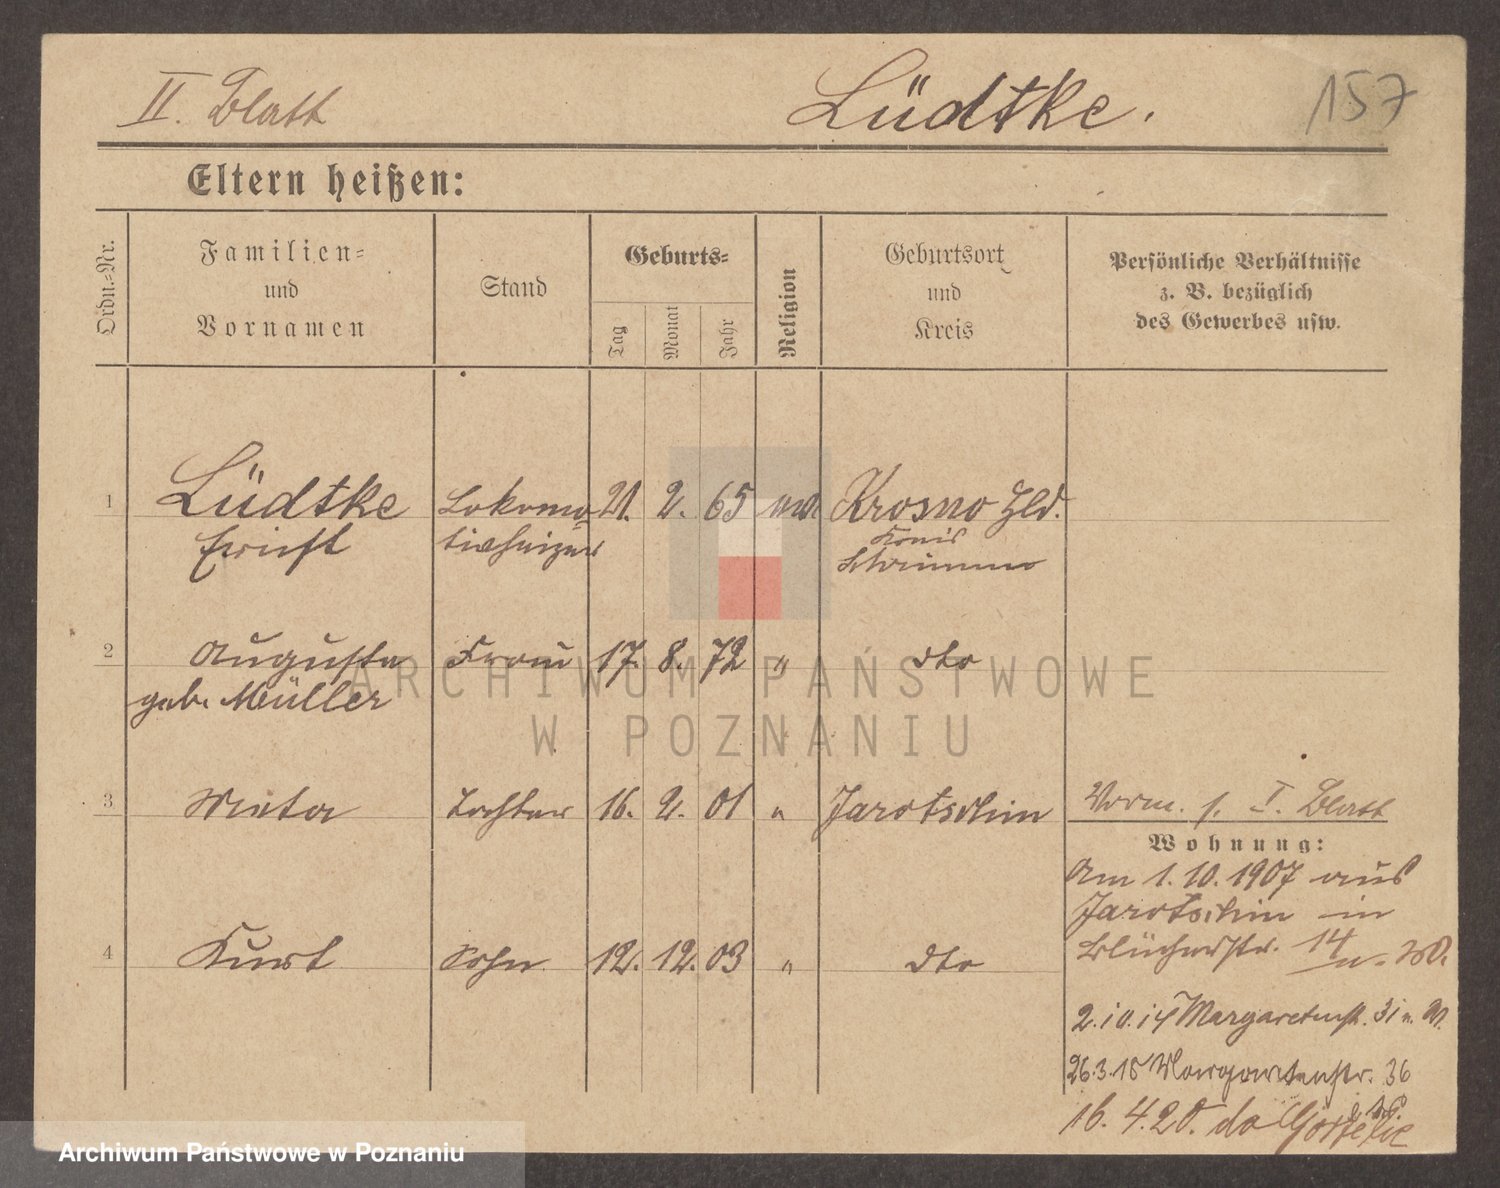 II. Blatt
Lüdtke.
157
Eltern heißen:
Ordn.-Nr.
Familien-
und
Vornamen
Stand
Geburts-
Tag
Monat
Jahr
Religion
Geburtsort
und
Kreis
Persönliche Verhältnisse
z. B. bezüglich
des Gewerbes usw.
1 Lüdtke Lokomo- 21. 2. 65 ev. Krosno Hld.
tivheizer Kreis
Schrimm
2 Auguste Frau 17. 8. 72 " dto
geb. Müller
3 Meta Tochter 16. 2. 01 " Jarotschin
Vorm. s. I. Blatt
Wohnung:
Am 1. 10. 1907 aus
Jarotschin in
Blücherstr. 14
4 Kurt Sohn 12. 12. 03 " dto
2.10.14 Margaretenstr. 31
26.3.15 Margaretenstr. 36
16. 4. 20.
ARCHIWUM PAŃSTWOWE
W POZNANIU
Archiwum Państwowe w Poznaniu